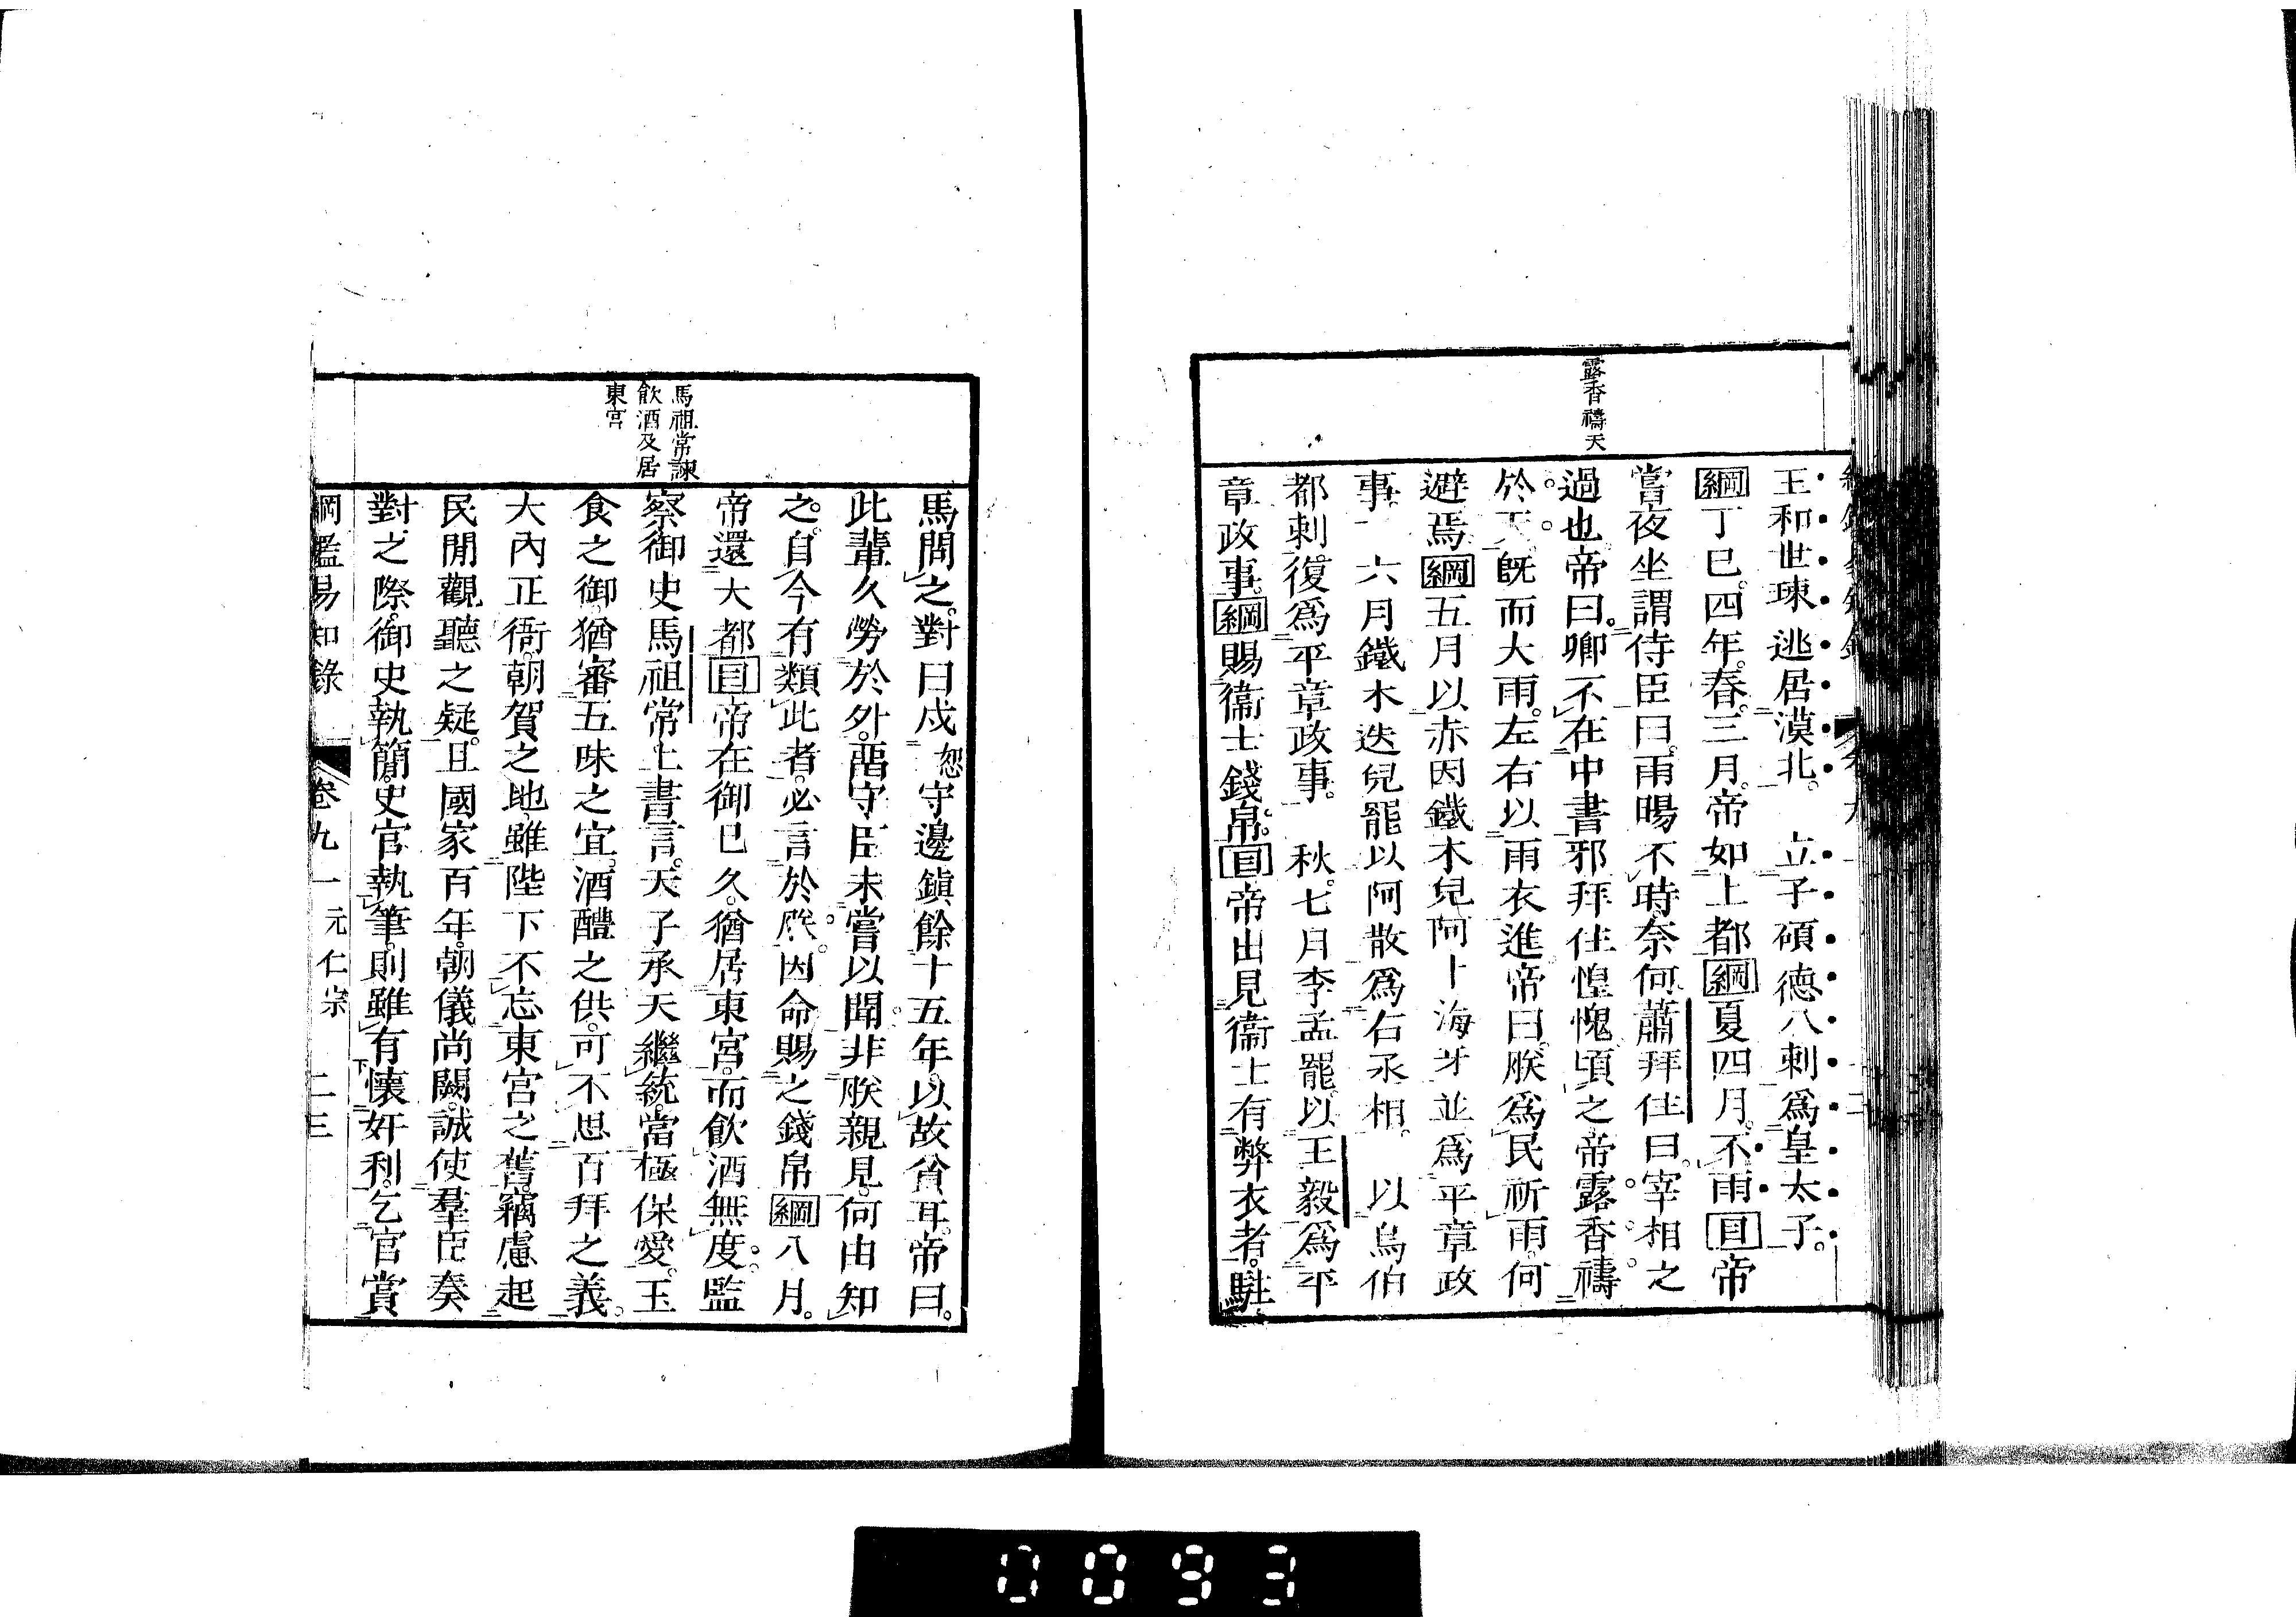 露香禱天
王和世㻋逃居漠北。　立子碩德八剌爲皇太子。
綱丁巳。四年。春。三月。帝如上都綱夏四月。不雨目帝
嘗夜坐謂侍臣曰。雨暘不時。奈何。蕭拜住曰。宰相之
過也。帝曰。卿不在中書邪。拜住惶愧。頃之。帝露香禱
於天。旣而大雨。左右以雨衣進。帝曰。朕爲民祈雨。何
避焉綱五月以赤因鐵木兒阿卜海牙並爲平章政
事　六月鐵木迭兒罷以阿散爲右丞相。　以烏伯
都剌。復爲平章政事。　秋。七月李孟罷。以王毅爲平
章政事。綱賜衞士錢帛。目帝出見衞士有弊衣者。駐
馬祖常諫
飲酒及居
東宮
馬問之。對曰戍恕守邊鎭餘十五年。以故貧耳。帝曰。
此輩久勞於外。畱守臣未嘗以聞。非朕親見。何由知
之。自今有類此者。必言於朕。因命賜之錢帛綱八月。
帝還大都目帝在御已久。猶居東宮。而飲酒無度。監
察御史馬祖常上書言。天子承天繼統。當極保愛。玉
食之御。猶審五味之宜。酒醴之供。可不思百拜之義。
大內正衙。朝賀之地。雖陛下不忘東宮之舊。竊慮起
民閒觀聽之疑。且國家百年。朝儀尚闕。誠使羣臣奏
對之際。御史執簡。史官執筆。則雖有懷奸利。乞官賞
綱鑑易知錄　卷九一　元仁宗　二三
0093